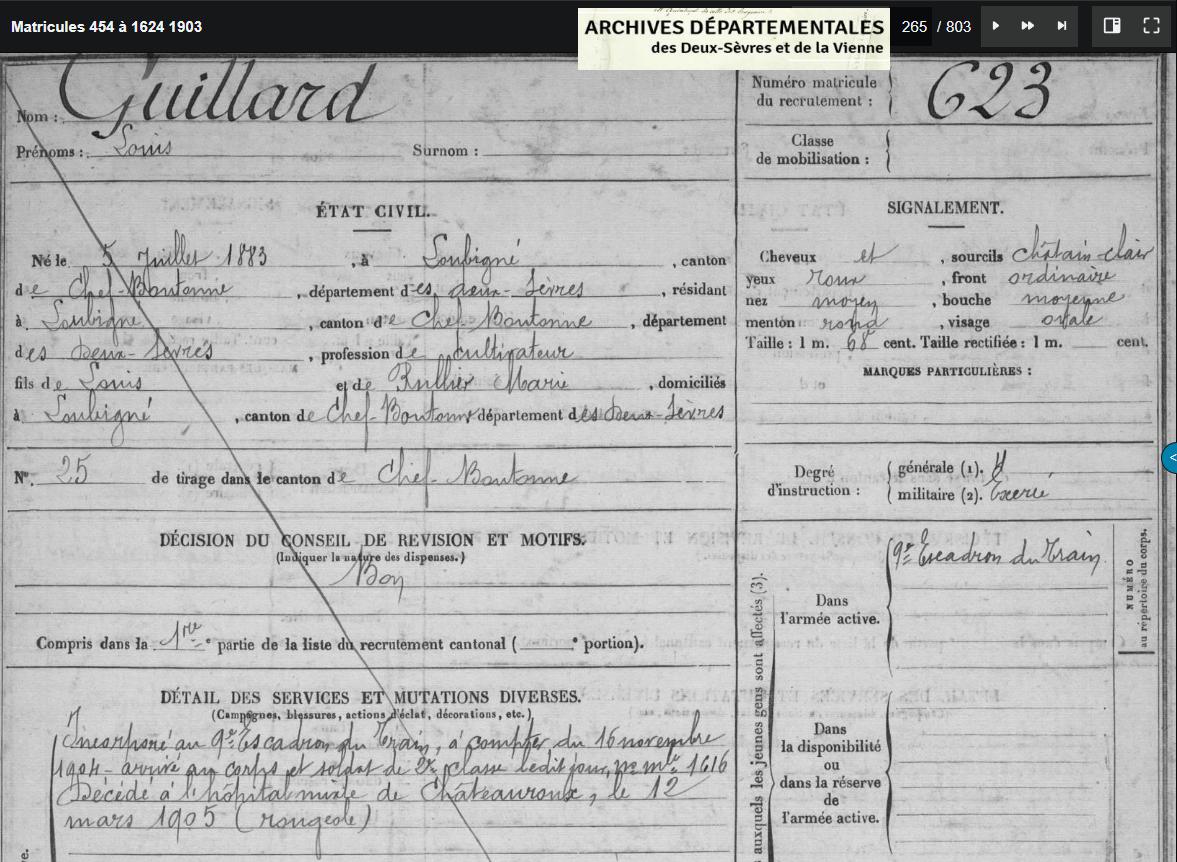 Matricules 454 à 1624 1903
ARCHIVES DÉPARTEMENTALES
des Deux-Sèvres et de la Vienne
265 / 803
Nom : Guillard
Prénoms : Louis Surnom :
Numéro matricule
du recrutement : 623
Classe
de mobilisation :
ÉTAT CIVIL.
Né le 5 Juillet 1883, à Loubigné, canton
de Chef-Boutonne, département des deux-Sèvres, résidant
à Loubigné, canton de Chef-Boutonne, département
des Deux-Sèvres, profession de cultivateur
fils de Louis et de Rullier Marie, domiciliés
à Loubigné, canton de Chef-Boutonne département des Deux-Sèvres
SIGNALEMENT.
Cheveux et, sourcils châtain-clair
yeux roux, front ordinaire
nez moyen, bouche moyenne
menton rond, visage ovale
Taille : 1 m. 68 cent. Taille rectifiée : 1 m. cent.
MARQUES PARTICULIÈRES :
N°. 25 de tirage dans le canton de Chef-Boutonne
Degré
d'instruction :
générale (1).
militaire (2). Exercé
DÉCISION DU CONSEIL DE REVISION ET MOTIFS.
(Indiquer la nature des dispenses.)
Bon
Compris dans la 1re partie de la liste du recrutement cantonal ( e portion).
DÉTAIL DES SERVICES ET MUTATIONS DIVERSES.
(Campagnes, blessures, actions d'éclat, décorations, etc.)
Incorporé au 9e Escadron du Train, à compter du 16 novembre
1904 - arrivé au corps et soldat de 2e classe ledit jour, no mle 1616
Décédé à l'hôpital mixte de Châteauroux, le 12
mars 1905 (rougeole)
auxquels les jeunes gens sont affectés (3).
Dans
l'armée active.
9e Escadron du Train
NUMÉRO
au répertoire du corps.
Dans
la disponibilité
ou
dans la réserve
de
l'armée active.